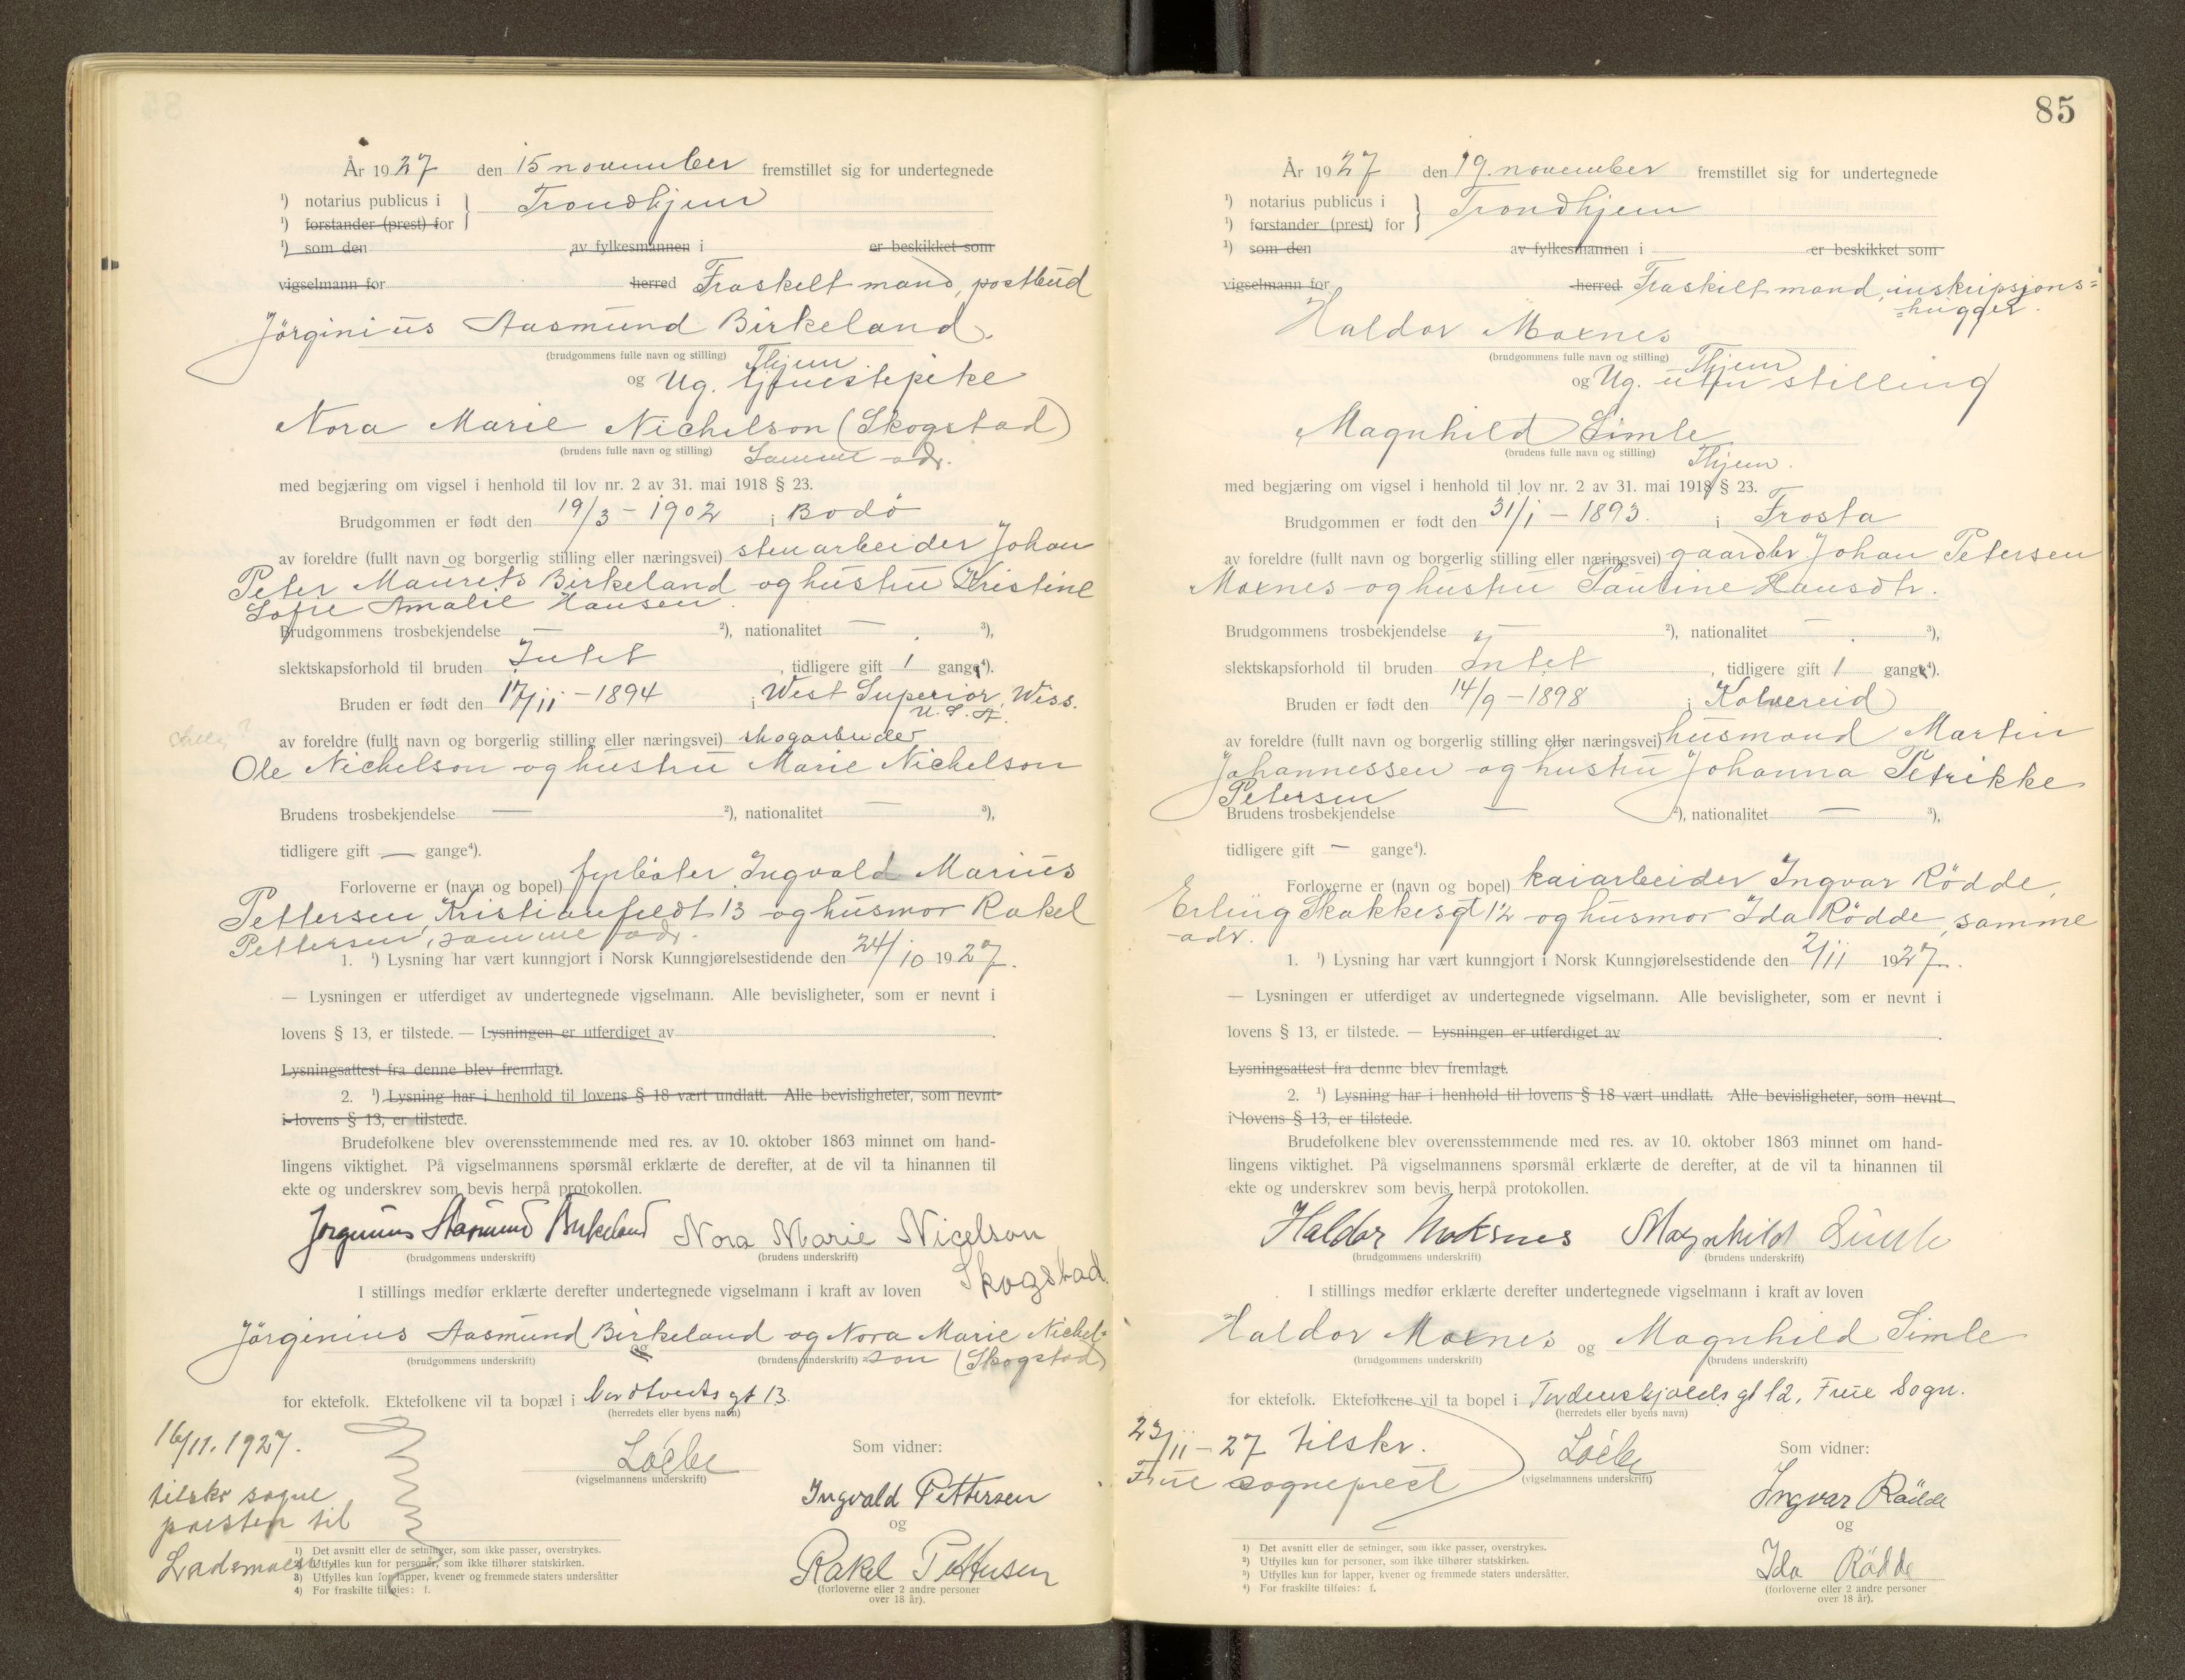 År 1927 den 15 november fremstillet sig for undertegnede
¹) notarius publicus i
¹) forstander (prest) for } Trondhjem
¹) som den av fylkesmannen i er beskikket som
vigselmann for herred Fraskilt mand, postbud
Jörginius Aasmund Birkeland.
(brudgommens fulle navn og stilling) Thjem
og Ug. tjenestepike
Nora Marie Nichelson (Skogstad)
(brudens fulle navn og stilling) Samme adr.
med begjæring om vigsel i henhold til lov nr. 2 av 31. mai 1918 § 23.
Brudgommen er født den 19/3 - 1902 i Bodö
av foreldre (fullt navn og borgerlig stilling eller næringsvei) stenarbeider Johan
Peter Maurets Birkeland og hustru Kristine
Sofie Amalie Hansen.
Brudgommens trosbekjendelse — ²), nationalitet — ³),
slektskapsforhold til bruden Intet, tidligere gift 1 gang⁴).
Bruden er født den 17/11 - 1894 i West Superior, Wiss.
U.S.A.
av foreldre (fullt navn og borgerlig stilling eller næringsvei) skogarbeider
Ole Nichelson og hustru Marie Nichelson
Brudens trosbekjendelse — ²), nationalitet — ³),
tidligere gift — gange⁴).
Forloverne er (navn og bopel) fyrböter Ingvald Marius
Pettersen, Kristianfeldt 13 og husmor Rakel
Pettersen, samme adr.
1. ¹) Lysning har vært kunngjort i Norsk Kunngjørelsestidende den 24/10 1927.
— Lysningen er utferdiget av undertegnede vigselmann. Alle bevisligheter, som er nevnt i
lovens § 13, er tilstede. — Lysningen er utferdiget av .
Lysningsattest fra denne blev fremlagt.
2. ¹) Lysning har i henhold til lovens § 18 vært undlatt. Alle bevisligheter, som nevnt
i lovens § 13, er tilstede.
Brudefolkene blev overensstemmende med res. av 10. oktober 1863 minnet om hand-
lingens viktighet. På vigselmannens spørsmål erklærte de derefter, at de vil ta hinannen til
ekte og underskrev som bevis herpå protokollen.
Jørginius Aasmund Birkeland Nora Marie Nicelson
(brudgommens underskrift) (brudens underskrift)
Skogstad.
I stillings medfør erklærte derefter undertegnede vigselmann i kraft av loven
Jörginius Aasmund Birkeland og Nora Marie Nichel-
(brudgommens underskrift) og (brudens underskrift) son (Skogstad)
for ektefolk. Ektefolkene vil ta bopæl i gt 13.
(herredets eller byens navn)
16/11. 1927.
Som vidner:
(vigselmannens underskrift)
tilskr sogne
Ingvald Pettersen
presten til
og
Lademoen
Rakel Pettersen
(forloverne eller 2 andre personer
over 18 år).
1) Det avsnitt eller de setninger, som ikke passer, overstrykes.
2) Utfylles kun for personer, som ikke tilhører statskirken.
3) Utfylles kun for lapper, kvener og fremmede staters undersåtter
4) For fraskilte tilføies: f.
85
År 1927 den 19. november fremstillet sig for undertegnede
¹) notarius publicus i
¹) forstander (prest) for } Trondhjem
¹) som den av fylkesmannen i er beskikket som
vigselmann for herred. Fraskilt mand, inskripsjons=
=hugger.
Haldor Moxnes
(brudgommens fulle navn og stilling) Thjem
og Ug. uten stilling
Magnhild Simle
(brudens fulle navn og stilling) Thjem.
med begjæring om vigsel i henhold til lov nr. 2 av 31. mai 1918 § 23.
Brudgommen er født den 31/1 - 1893. i Frosta
av foreldre (fullt navn og borgerlig stilling eller næringsvei) gaardbr. Johan Petersen
Moxnes og hustru Pauline Hansdtr.
Brudgommens trosbekjendelse — ²), nationalitet — ³),
slektskapsforhold til bruden Intet, tidligere gift 1 gang⁴).
Bruden er født den 14/9 - 1898 i Kolvereid
av foreldre (fullt navn og borgerlig stilling eller næringsvei) husmand Martin
Johannessen og hustru Johanna Petrikke
Petersen
Brudens trosbekjendelse — ²), nationalitet — ³),
tidligere gift — gange⁴).
Forloverne er (navn og bopel) kaiarbeider Ingvar Rödde,
Erling Skakkesgt 12 og husmor Ida Rödde, samme
adr.
1. ¹) Lysning har vært kunngjort i Norsk Kunngjørelsestidende den 2/11 1927.
— Lysningen er utferdiget av undertegnede vigselmann. Alle bevisligheter, som er nevnt i
lovens § 13, er tilstede. — Lysningen er utferdiget av .
Lysningsattest fra denne blev fremlagt.
2. ¹) Lysning har i henhold til lovens § 18 vært undlatt. Alle bevisligheter, som nevnt
i lovens § 13, er tilstede.
Brudefolkene blev overensstemmende med res. av 10. oktober 1863 minnet om hand-
lingens viktighet. På vigselmannens spørsmål erklærte de derefter, at de vil ta hinannen til
ekte og underskrev som bevis herpå protokollen.
Haldor Moksnes Magnhild Simle
(brudgommens underskrift) (brudens underskrift)
I stillings medfør erklærte derefter undertegnede vigselmann i kraft av loven
Haldor Moxnes og Magnhild Simle
(brudgommens underskrift) (brudens underskrift)
for ektefolk. Ektefolkene vil ta bopel i Tordenskjolds gt 12, Frue Sogn.
(herredets eller byens navn)
23/11 - 27 tilskr.
Som vidner:
Frue sogneprest
(vigselmannens underskrift)
Ingvar Rödde
og
Ida Rödde
(forloverne eller 2 andre personer
over 18 år).
¹) Det avsnitt eller de setninger, som ikke passer, overstrykes.
²) Utfylles kun for personer, som ikke tilhører statskirken.
³) Utfylles kun for lapper, kvener og fremmede staters undersåtter.
⁴) For fraskilte tilføies: f.